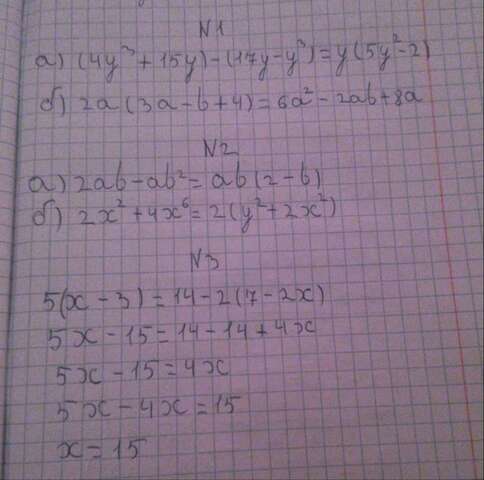 N1
а) (4y³ + 15y) - (17y - y³) = y(5y² - 2)
б) 2a (3a - b + 4) = 6a² - 2ab + 8a
N2
а) 2ab - ab² = ab (2 - b)
б) 2x² + 4x⁶ = 2 (y² + 2x²)
N3
5(x - 3) = 14 - 2(7 - 2x)
5x - 15 = 14 - 14 + 4x
5x - 15 = 4x
5x - 4x = 15
x = 15